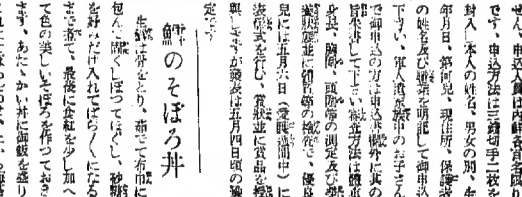 せん、申込人員は内鮮各百名限り
です、申込方法は三錢切手二枚を
封入し本人の姓名、男女の別、生
年月日、第何兒、現住所、保護者
の姓名及び職業を明記して御申込
下さい、軍人遺家族中のお子さん
で御申込の方は申込書欄外に其の
旨朱書して下さい 審査方法は體重
身長、胸圍、頭圍等の測定及び發
育狀態並に體質等の檢査で、優良
兒には五月六日（愛護週間中）に
表彰式を行ひ、賞狀並に賞品を授
與しますが發表は五月四日頃の豫
定です
鱈のそぼろ丼
生鱈は骨をとり、茹でて布巾に
包んで固くしぼつてほぐし、砂糖
を好みだけ入れてぱら〳〵になる
まで煮て、最後に食紅を少し加へ
て色の美しいそぼろを作つておき
ます、あたゝかい丼に御飯を盛り